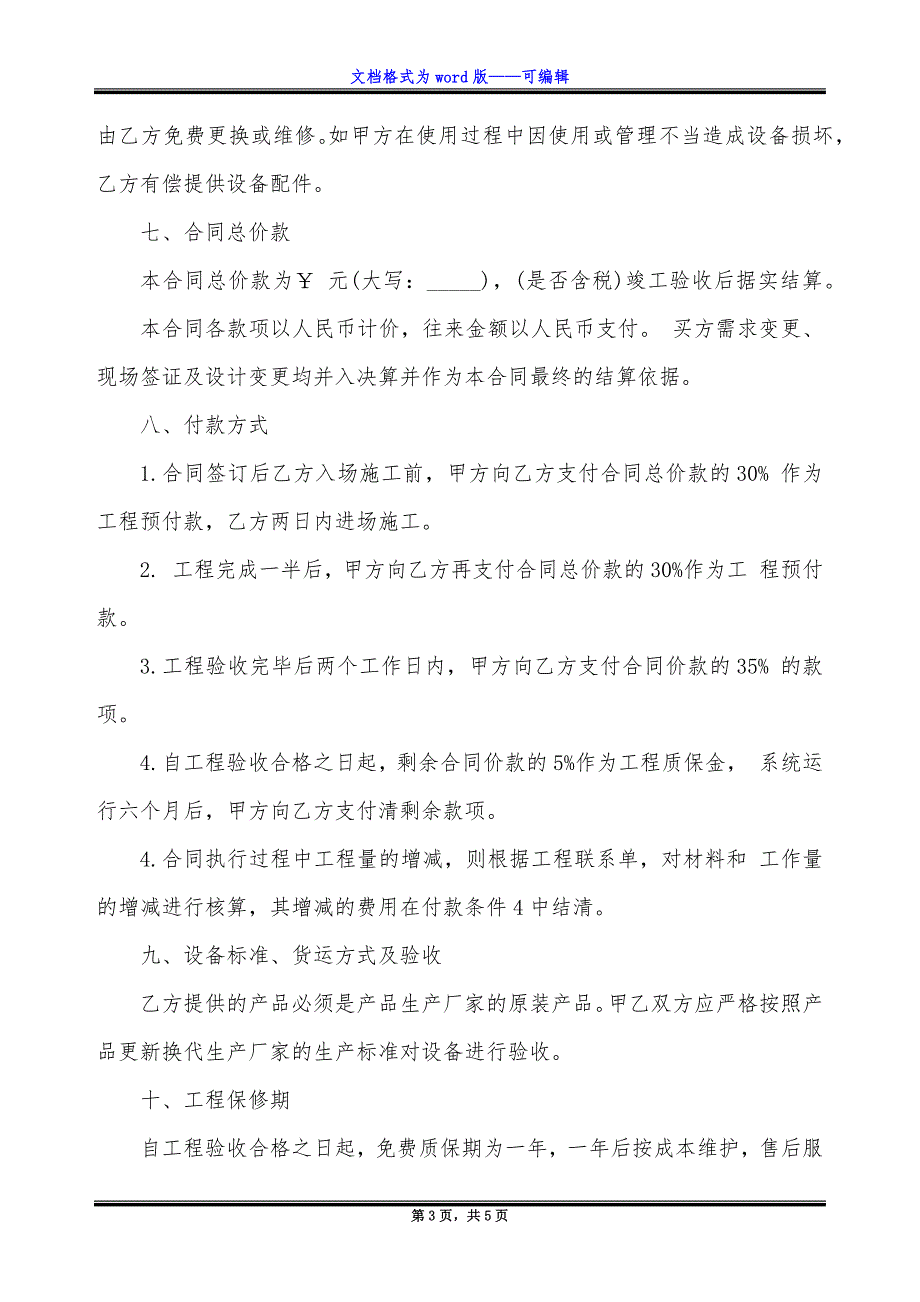 文档格式为 word 版——可编辑
由乙方免费更换或维修。如甲方在使用过程中因使用或管理不当造成设备损坏，
乙方有偿提供设备配件。
七、合同总价款
本合同总价款为￥ 元(大写：_____)，(是否含税)竣工验收后据实结算。
本合同各款项以人民币计价，往来金额以人民币支付。 买方需求变更、
现场签证及设计变更均并入决算并作为本合同最终的结算依据。
八、付款方式
1.合同签订后乙方入场施工前，甲方向乙方支付合同总价款的30% 作为
工程预付款，乙方两日内进场施工。
2. 工程完成一半后，甲方向乙方再支付合同总价款的30%作为工 程预付
款。
3.工程验收完毕后两个工作日内，甲方向乙方支付合同价款的35% 的款
项。
4.自工程验收合格之日起，剩余合同价款的5%作为工程质保金， 系统运
行六个月后，甲方向乙方支付清剩余款项。
4.合同执行过程中工程量的增减，则根据工程联系单，对材料和 工作量
的增减进行核算，其增减的费用在付款条件4中结清。
九、设备标准、货运方式及验收
乙方提供的产品必须是产品生产厂家的原装产品。甲乙双方应严格按照产
品更新换代生产厂家的生产标准对设备进行验收。
十、工程保修期
自工程验收合格之日起，免费质保期为一年，一年后按成本维护，售后服
第 3 页，共 5 页